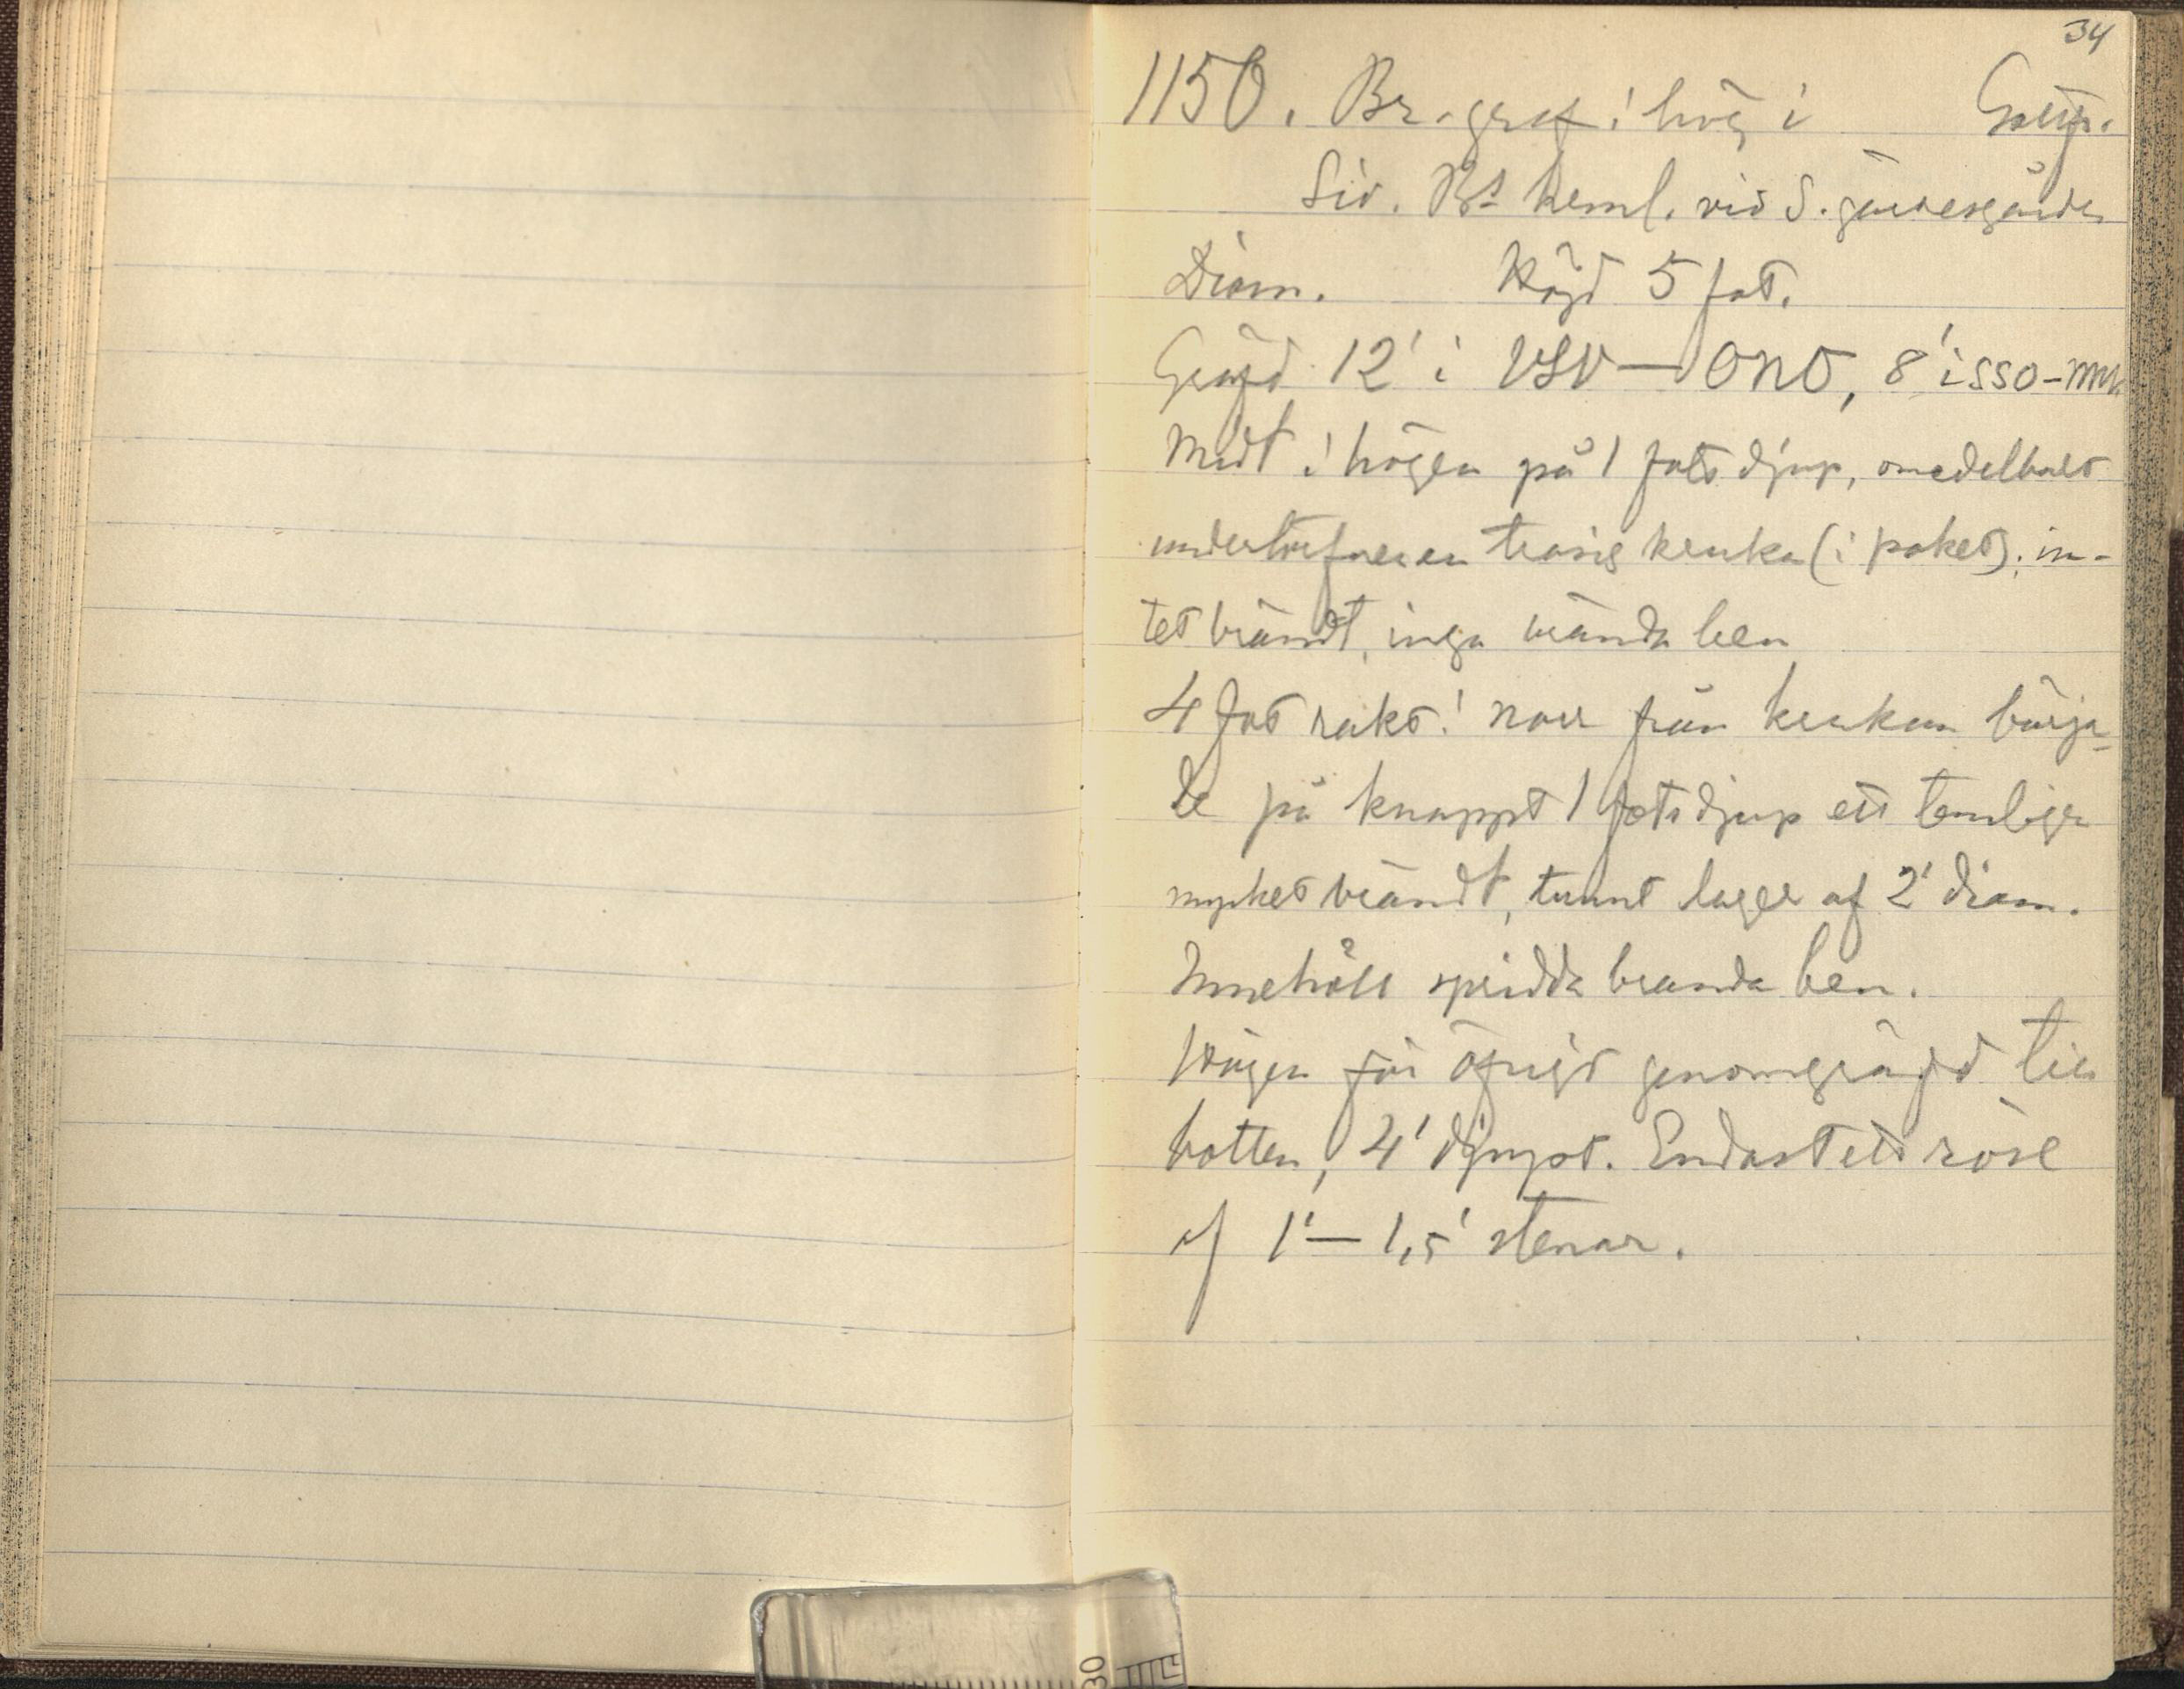 34
1150. Br. graf i hög i
Siv. Bs heml. vid S. gärdesgården
Diam. Höjd 5 fot.
Gräfd 12' i VSV—ONO, 8' i SSO-NNV
Midt i högen på 1 fots djup, omedelbart
under torfven en trasig kruka (i paket); in-
tet brändt, inga brända ben
4 fot rakt i norr från krukan börja-
de på knappt 1 fots djup ett temligen
mycket brändt, tunnt lager af 2' diam.
Innehöll spridda brända ben.
Högen för öfrigt genomgräfd till
botten, 4' djupt. Endast ett röse
af 1'—1,5' stenar.
30